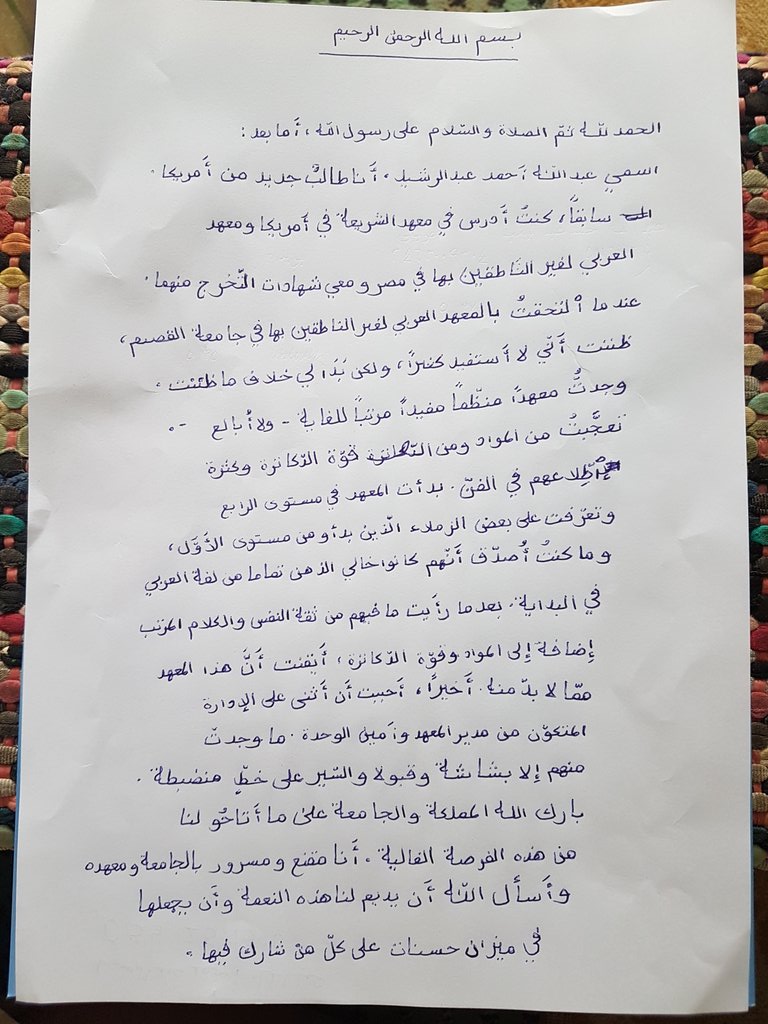 بسم الله الرحمن الرحيم
الحمد لله ثمّ الصلاة والسّلام على رسول الله، أما بعد:
اسمي عبد الله أحمد عبد الرشيد. أنا طالبٌ جديد من أمريكا.
سابقاً، كنتُ أدرس في معهد الشريعة في أمريكا ومعهد
العربي لغير النّاطقين بها في مصر ومعي شهادات التّخرج منهما.
عند ما ٱلتحقتُ بالمعهد العربي لغير الناطقين بها في جامعة القصيم،
ظننت أنّي لا أستفيد كثيراً، ولكن بَدَا لي خلاف ما ظننت.
وجدتُ معهداً منظّماً مفيداً مرتباً للغاية - ولا أُبالغ -.
تعجَّبتُ من المواد ومن قوّة الدّكاترة وكثرة
ٱطِّلاعهم في الفنّ. بدأت المعهد في مستوى الرابع
وتعرّفت على بعض الزملاء الّذين بدأو من مستوى الأوَّل،
وما كنتُ أُصدّق أنّهم كانوا خالي الذهن تماما من لغة العربي
في البداية. بعد ما رأيت ما فيهم من ثقة النفس والكلام المرتب
إضافة إلى المواد وقوّة الدّكاترة، أيقنت أنَّ هذا المعهد
ممّا لا بدّ منه. أخيراً، أحببت أن أثنى على الإدارة
المتكوّن من مدير المعهد وأمين الوحدة. ما وجدتّ
منهم إلا بشاشة وقبولا والسّير على خطّ منضبطة.
بارك الله المملكة والجامعة على ما أتاحُو لنا
من هذه الفرصة الغالية. أنا مقنع ومسرور بالجامعة ومعهده
وأسأل اللّه أن يديم لنا هذه النعمة وأن يجعلها
في ميزان حسنات على كلّ من شارك فيها.